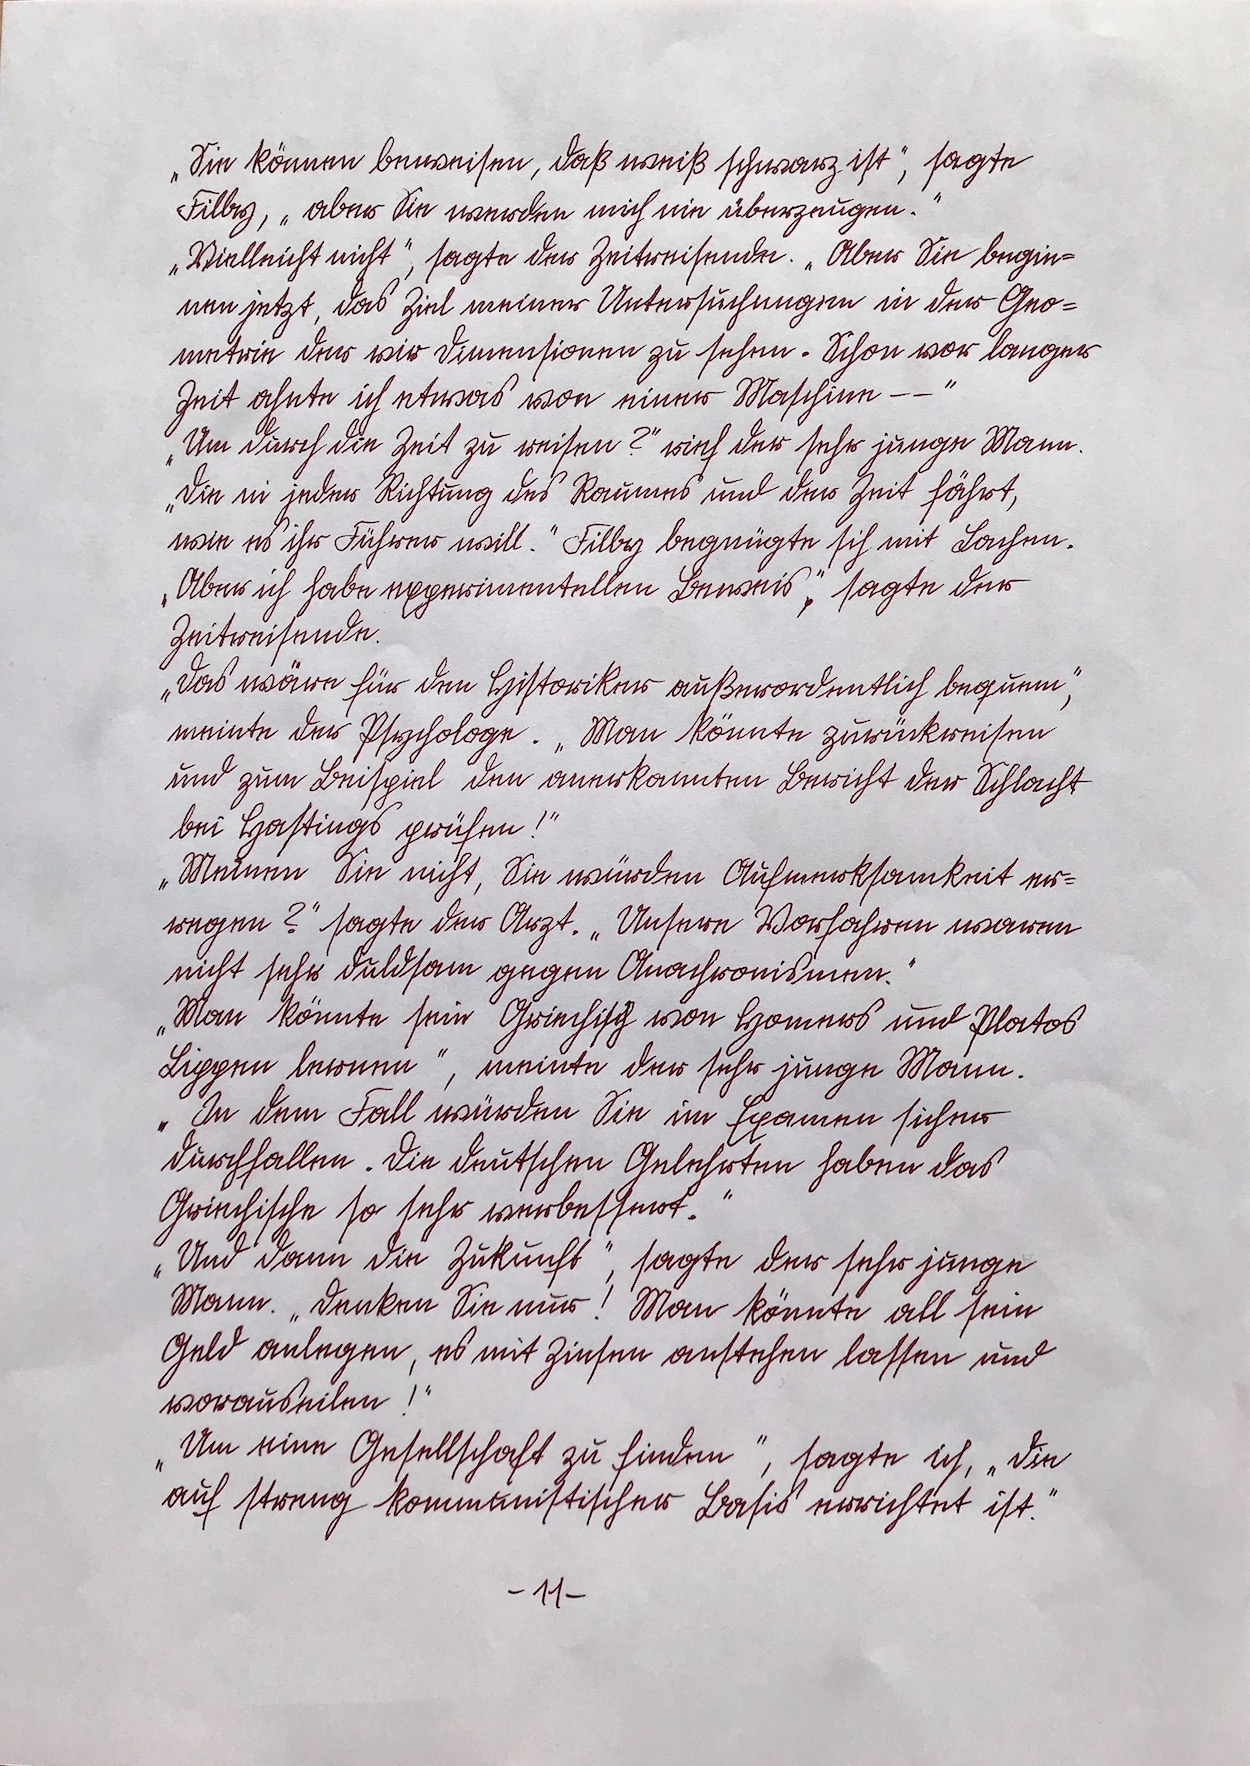 „Sie können beweisen, daß weiß schwarz ist“, sagte
Filby, „aber Sie werden mich nie überzeugen.“
„Vielleicht nicht“, sagte der Zeitreisende. „Aber Sie begin=
nen jetzt, das Ziel meiner Untersuchungen in der Geo=
metrie der vier Dimensionen zu sehen. Schon vor langer
Zeit ahnte ich etwas von einer Maschine –– “
„Um durch die Zeit zu reisen?“ rief der sehr junge Mann.
„Die in jeder Richtung des Raumes und der Zeit fährt,
wie es ihr Führer will.“ Filby begnügte sich mit Lachen.
„Aber ich habe experimentellen Beweis“, sagte der
Zeitreisende.
„Das wäre für den Historiker außerordentlich bequem“,
meinte der Psychologe. „Man könnte zurückreisen
und zum Beispiel den anerkannten Bericht der Schlacht
bei Hastings prüfen!“
„Meinen Sie nicht, Sie würden Aufmerksamkeit er=
regen?“ sagte der Arzt. „Unsere Vorfahren waren
nicht sehr duldsam gegen Anachronismen.“
„Man könnte sein Griechisch von Homers und Platos
Lippen lernen“, meinte der sehr junge Mann.
„In dem Fall würden Sie im Examen sicher
durchfallen. Die deutschen Gelehrten haben das
Griechische so sehr verbessert.“
„Und dann die Zukunft“, sagte der sehr junge
Mann. „Denken Sie nur! Man könnte all sein
Geld anlegen, es mit Zinsen anstehen lassen und
vorauseilen!“
„Um eine Gesellschaft zu finden“, sagte ich, „die
auf streng kommunistischer Basis errichtet ist.“
–11–